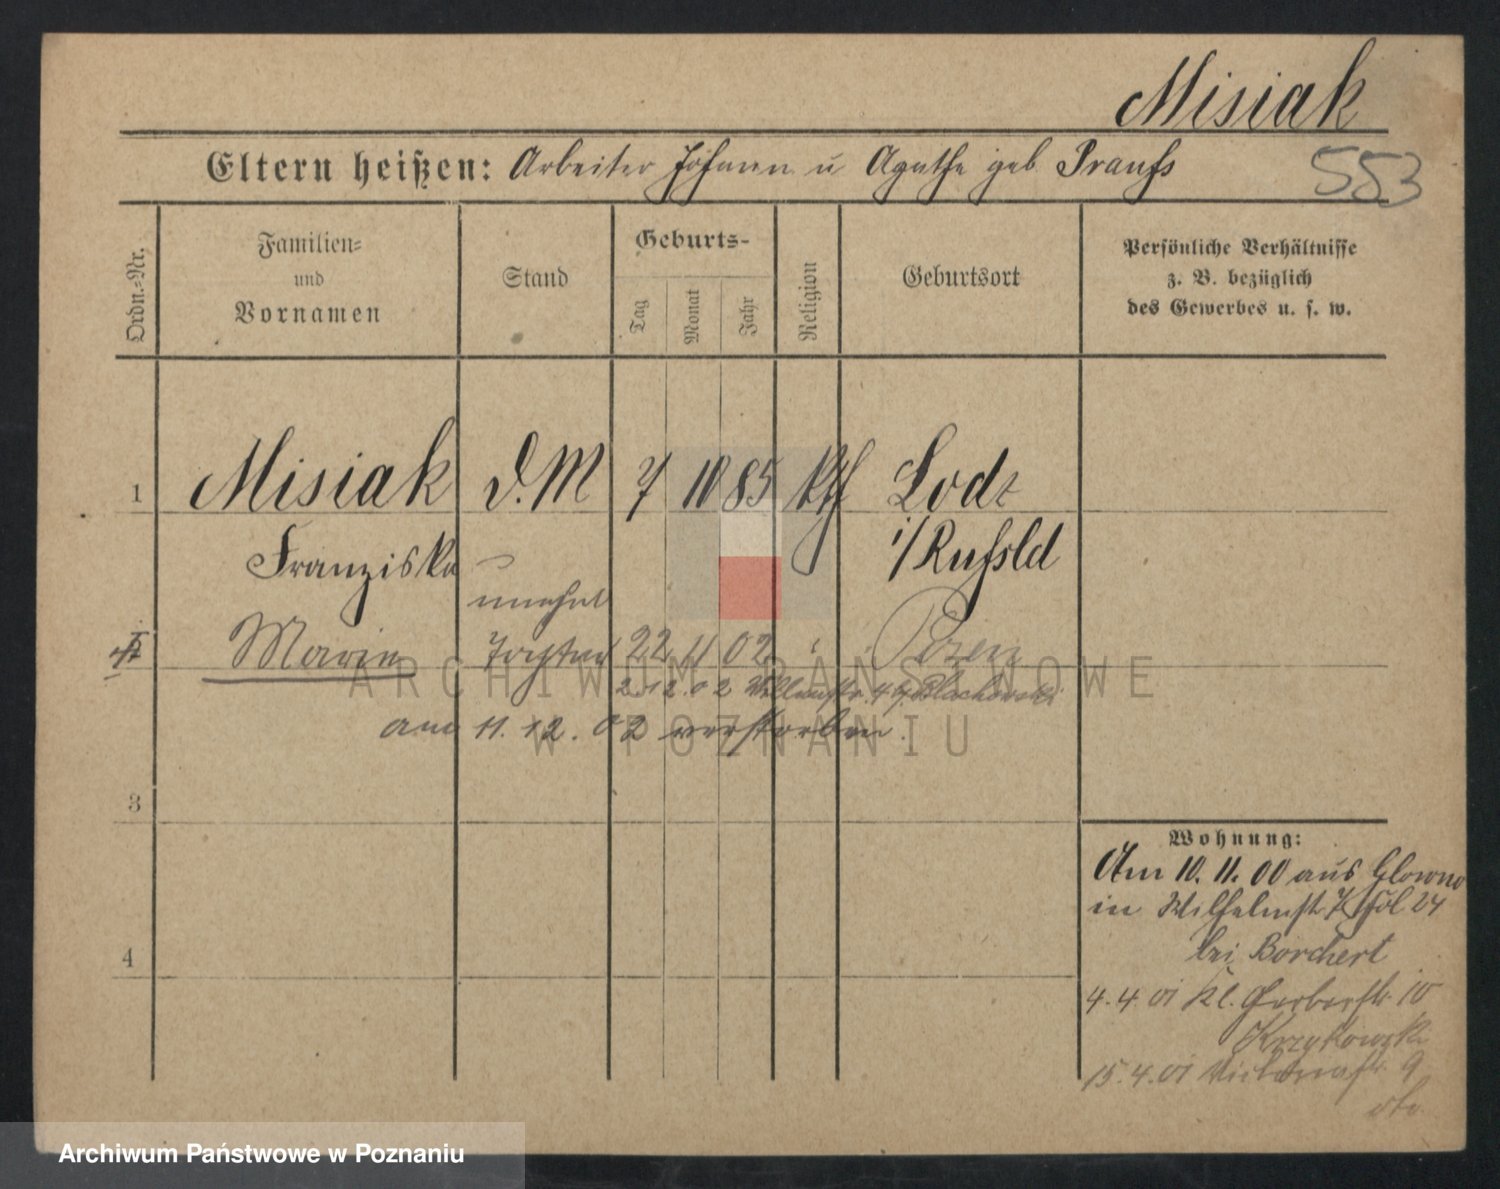 Misiak
Eltern heißen: Arbeiter Johann u Agathe geb
553
Ordn.-Nr.
Familien-
und
Vornamen
Stand
Geburts-
Tag
Monat
Jahr
Religion
Geburtsort
Persönliche Verhältnisse
z. B. bezüglich
des Gewerbes u. s. w.
1 Misiak D.M 7 10 85 kth Lodz
Franziska i/Russld
unehel
Marie Tochter 22 11 02 Posen
2.12.02
am 11.12.02 verstorben.
3
4
Wohnung:
Am 10. 11. 00 aus Glowno
in Wilhelmst. 7 24
bei Borchert
4.4.01 Kl. Gerberstr. 10
Krzykowski
15.4.01 Victoriastr. 9
ARCHIWUM PAŃSTWOWE
W POZNANIU
Archiwum Państwowe w Poznaniu